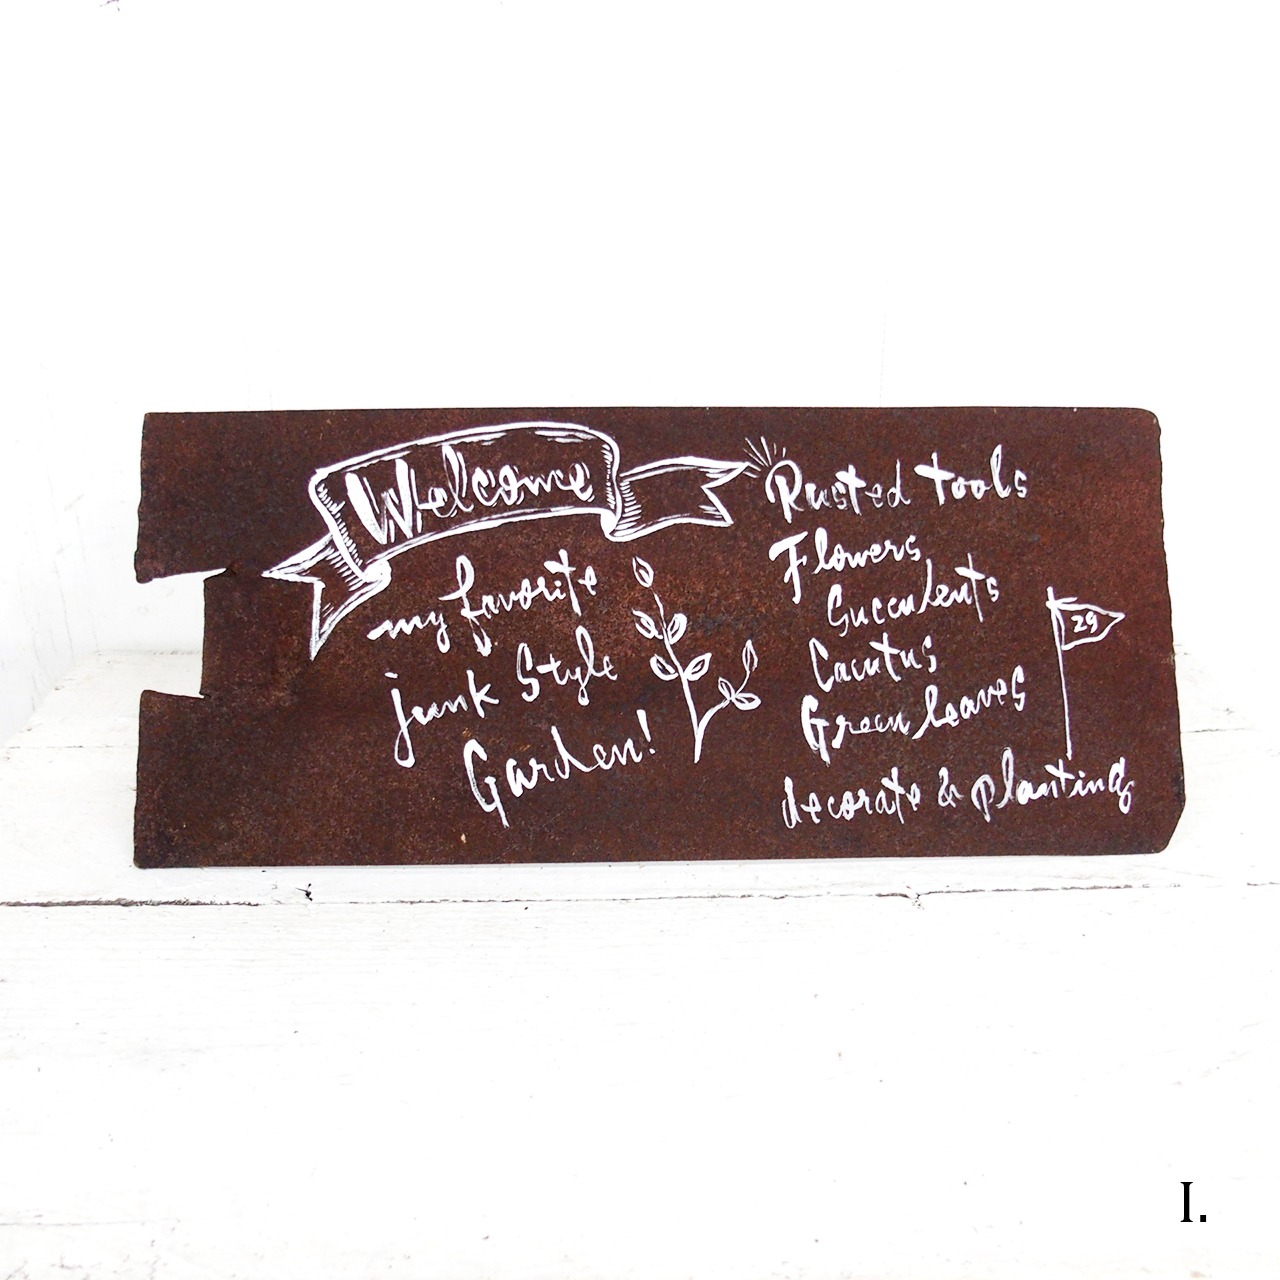 Welcome
my favorite
junk Style
Garden!
Rusted tools
Flowers
Succulents
Cacutus
Green leaves
29
decorate & planting
I.